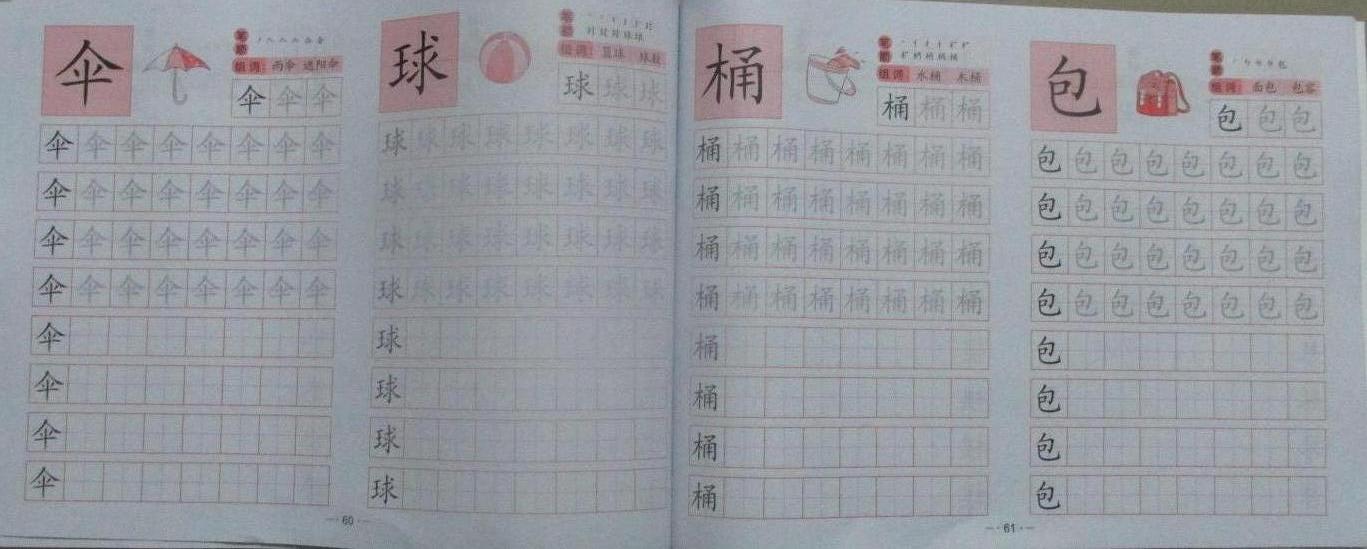 伞
笔顺
组词 雨伞 遮阳伞
伞伞伞
伞伞伞伞伞伞伞伞
伞伞伞伞伞伞伞伞
伞伞伞伞伞伞伞伞
伞伞伞伞伞伞伞伞
伞
伞
伞
伞
球
笔顺
组词 篮球
球球球
球球球球球球球球
球球球球球球球球
球球球球球球球球
球球球球球球球球
球
球
球
球
60
桶
笔顺
组词 水桶 木桶
桶桶桶
桶桶桶桶桶桶桶桶
桶桶桶桶桶桶桶桶
桶桶桶桶桶桶桶桶
桶桶桶桶桶桶桶桶
桶
桶
桶
桶
包
笔顺
组词 面包 包容
包包包
包包包包包包包包
包包包包包包包包
包包包包包包包包
包包包包包包包包
包
包
包
包
61